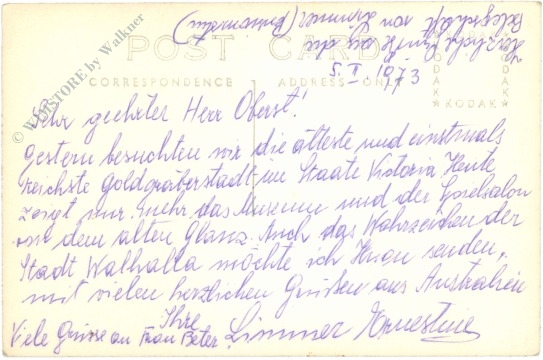 POST CARD
CORRESPONDENCE
ADDRESS ONLY
KODAK
KODAK
KODAK
© WEBSTORE by Walkner
5. II 1973
Sehr geehrter Herr Oberst!
Gestern besuchten wir die älteste und einstmals
reichste Goldgräberstadt im Staate Victoria Heute
zeigt nur mehr das Museum und der
von dem alten Glanz. Auch das Wahrzeichen der
Stadt Walhalla möchte ich Ihnen senden,
mit vielen herzlichen Grüßen aus Australien
Ihre
Viele Grüsse an Frau Peter. Limmer Ernestine
Herzliche Grüße von